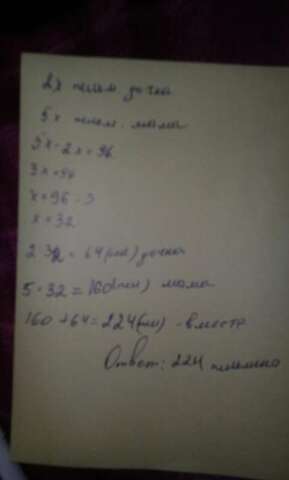 2х пельм дочка
5х пельм. мама
5х-2х=96
3х=96
х=96:3
х=32
2·32=64(пел) дочка
5·32=160(пел) мама
160+64=224(пел) -вместе
Ответ: 224 пельмено